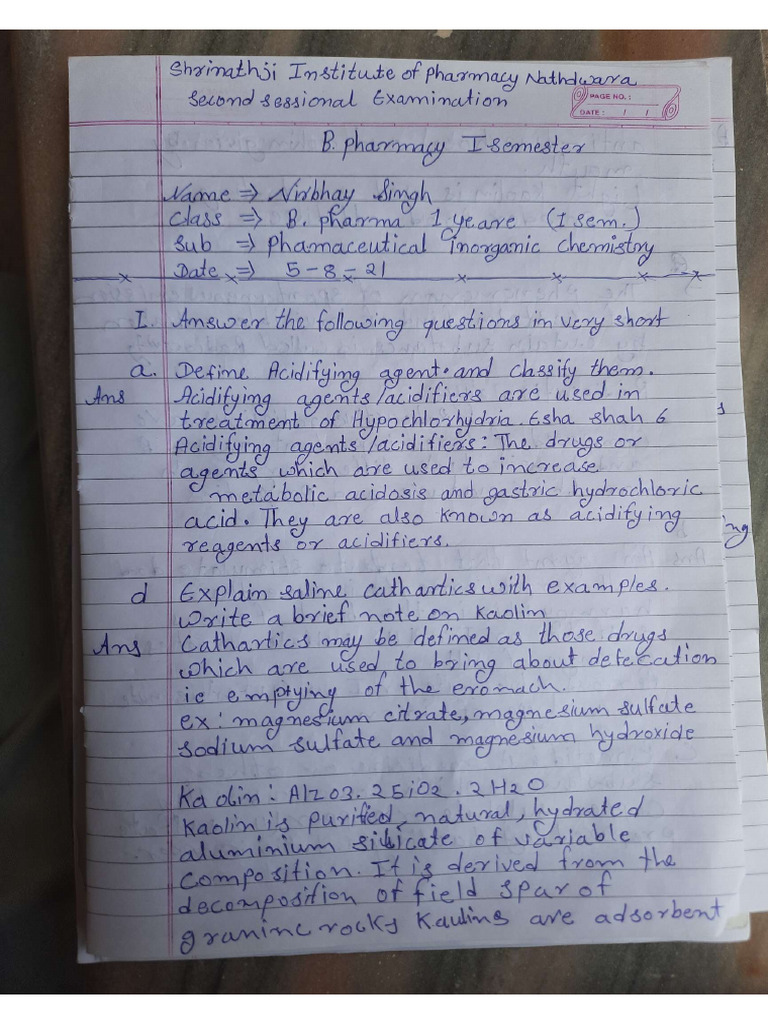 Shrinathji Institute of pharmacy Nathdwara
Second sessional Examination
PAGE NO.:
DATE: / /
B. pharmacy I semester
Name ⇒ Nirbhay Singh
Class ⇒ B. pharma 1 yeare (I sem.)
Sub ⇒ Phamaceutical inorganic chemistry
Date ⇒ 5-8-21
I. Answer the following questions in very short
a. Define Acidifying agent. and classify them.
Ans Acidifying agents/acidifiers are used in
treatment of Hypochlorhydria. Esha shah 6
Acidifying agents/acidifiers: The drugs or
agents which are used to increase
metabolic acidosis and gastric hydrochloric
acid. They are also known as acidifying
reagents or acidifiers.
d Explain saline cathartics with examples.
Write a brief note on Kaolin
Ans Cathartics may be defined as those drugs
which are used to bring about defecation
ie emptying of the eromach.
ex: magnesium citrate, magnesium sulfate
sodium sulfate and magnesium hydroxide
Kaolin: Al2O3. 2SiO2. 2H2O
Kaolin is purified, natural, hydrated
aluminium silicate of variable
composition. It is derived from the
decomposition of field spar of
graninc rocks Kaulins are adsorbent